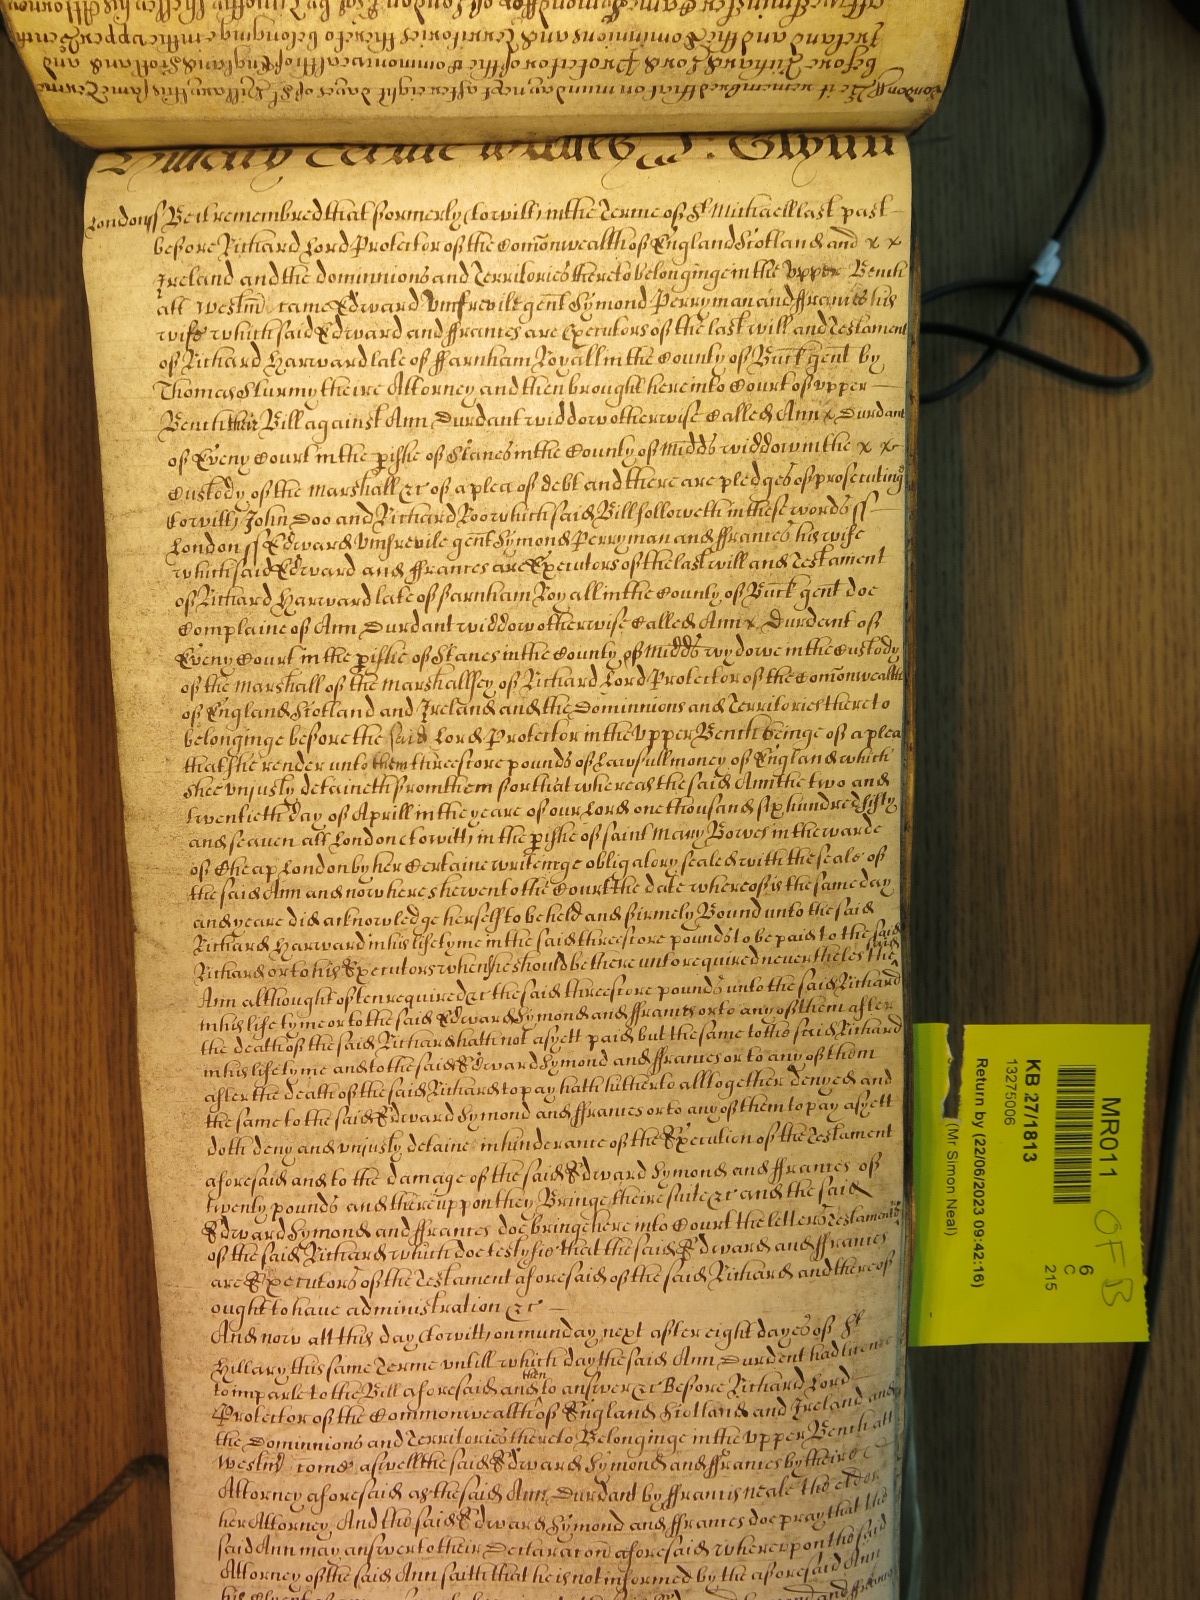 London ss Be it remembred that formerly (to witt) in the Terme of St Michaell last past
before Richard Lord Protector of the Com̄onwealth of England Scotland and x x
Ireland and the dominnions and Territories thereto belonginge in the vpper Bench
att Westm̄ came Edward Vmfrevile gent Symond Perryman and ffrances his
wife which said Edward and ffrances are Executors of the last will and Testament
of Richard Harward late of ffarnham Royall in the County of Buck gent by
Thomas Sturmy theire Attorney and then brought here into Court of vpper
Bench their Bill against Ann Durdant widdow otherwise Called Ann x Durdant
of Eveny Court in the p̱ishe of Stanes in the County of Midds widdow in the x x
Custody of the Marshall &c of a plea of debt and there are pledges of prosecuting
(to witt) John Doo and Richard Roo which said Bill followeth in these words ss
London ss Edward Vmfrevile gent Symond Perryman and ffrances his wife
which said Edward and ffrances are Executors of the last will and Testament
of Richard Harward late of farnham Royall in the County of Buck gent doe
Complaine of Ann Durdant widdow otherwise Called Ann x Durdant of
Eveny Court in the p̱ishe of Stanes in the County of Midds wydowe in the Custody
of the Marshall of the Marshallsey of Richard Lord Protector of the Com̄onwealth
of England Scotland and Ireland and the Dominnions and Territories thereto
belonginge before the said Lord Protector in the vpper Bench beinge of a plea
that she render unto them threescore pounds of Lawfull money of England which
shee vniustly detaineth from them for that whereas the said Ann the two and
twentieth day of Aprill in the yeare of our Lord one thousand six hundred fifty
and seaven att London (to witt) in the p̱ishe of saint Mary Bowes in the warde
of Cheap London by her Certaine writeinge obligatory sealed with the seale of
the said Ann and now here shewen to the Court the date whereof is the same day
and yeare did acknowledge herself to be held and firmely Bound unto the said
Richard Harward in his life tyme in the said threescore pounds to be paid to the said
Richard or to his Executors when she should be there unto required nevertheles the said
Ann althought often required &c the said threescore pounds unto the said Richard
in his life tyme or to the said Edward Symond and ffrances or to any of them after
the death of the said Richard hath not as yett paid but the same to the said Richard
in his life tyme and to the said Edward Symond and ffrances or to any of them
after the death of the said Richard to pay hath hitherto alltogether denyed and
the same to the said Edward Symond and ffrances or to any of them to pay as yett
doth deny and vniustly detaine in hinderance of the Execution of the Testament
aforesaid and to the damage of the said Edward Symond and ffrances of
twenty pounds and thereuppon they Bringe theire suite &c and the said
Edward Symond and ffrances doe bringe here into Court the letters Testamentary
of the said Richard which doe testyfie that the said Edward and ffrances
are Executors of the Testament aforesaid of the said Richard and thereof
ought to have administration &c
And now att this day (to witt) on munday next after eight dayes of St
Hillary this same Terme untill which day the said Ann Durdent had licence
to imparle to the Bill aforesaid and then to answer &c Before Richard Lord
Protector of the Commonwealth of England Scotland and Ireland and
the Dominnions and Territories thereto Belonginge in the vpper Bench att
Westm̄ come aswell the said Edward Symond and ffrances by theire
Attorney aforesaid as the said Ann Durdant by ffrancis Neale the elder
her Attorney And the said Edward Symond and ffrances doe pray that the
said Ann may answer to their Declaracon aforesaid whereuppon the said
Attorney of the said Ann saith that he is not informed by the aforesaid Ann
MR011
OFB
6
C
215
KB 27/1813
13275006
Return by (22/06/2023 09:42:16)
(Mr Simon Neal)